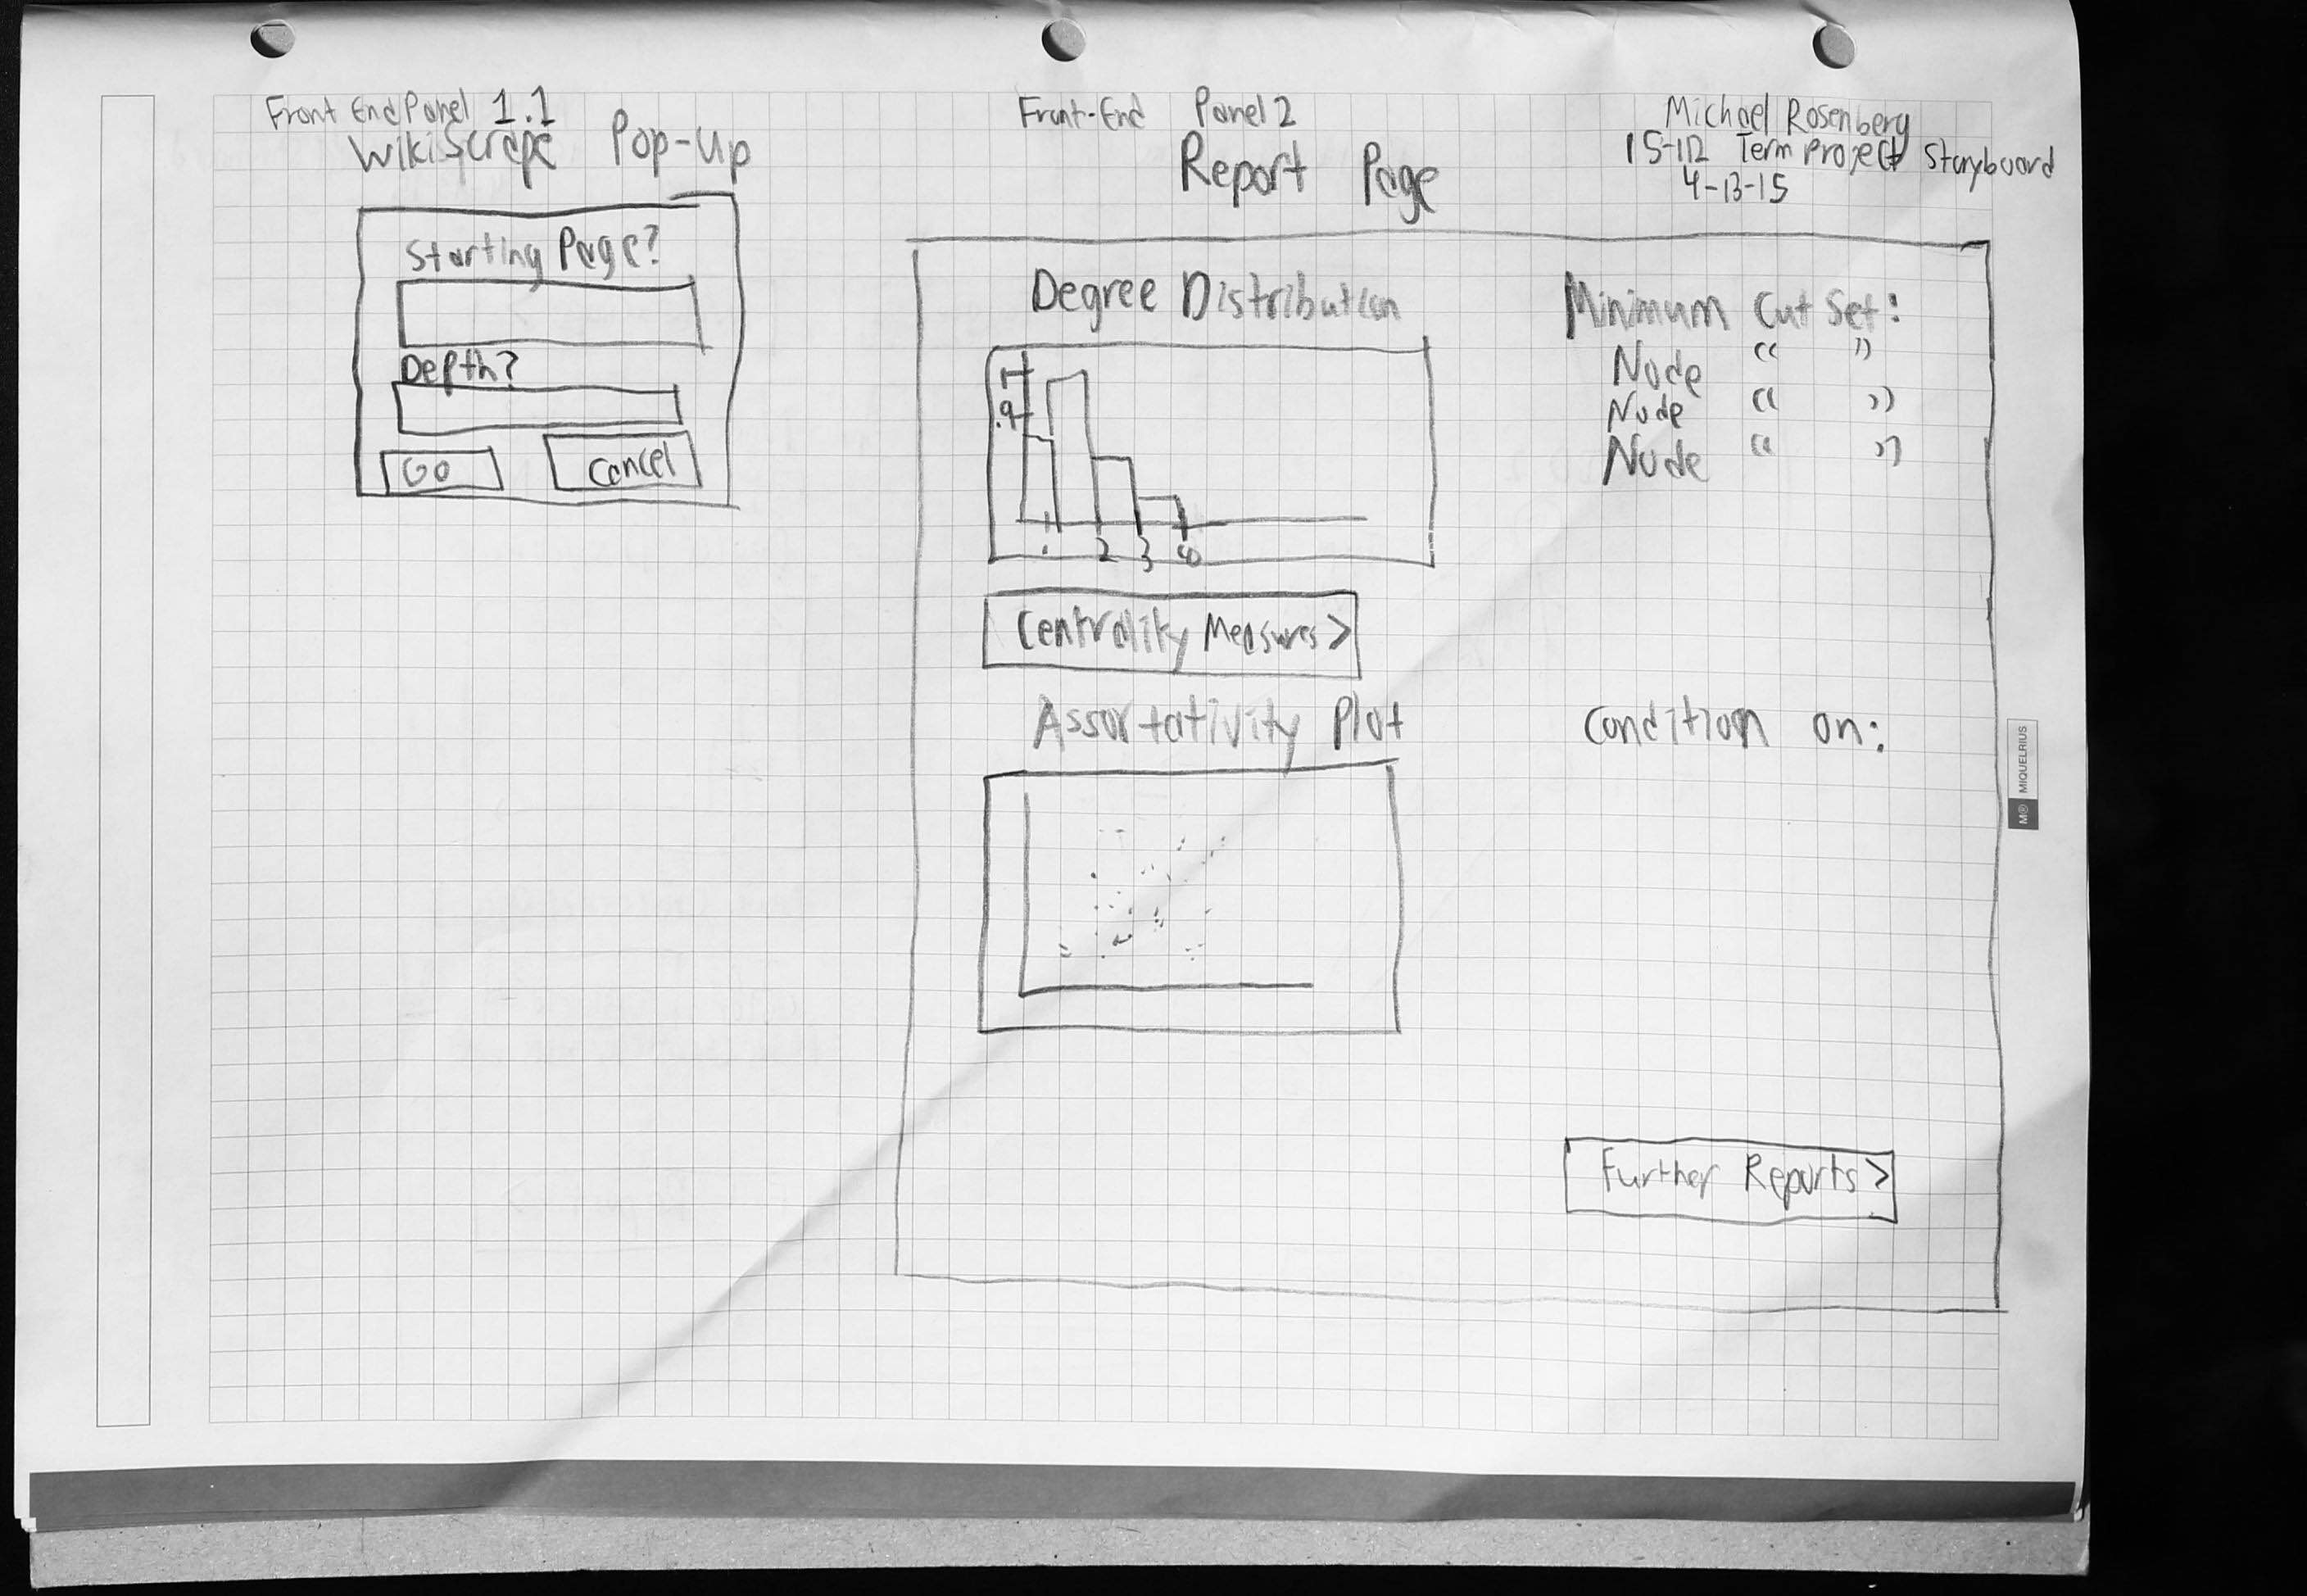 Front End Panel 1.1
WikiScrape Pop-Up
Starting Page?
Depth?
Go
Cancel
Front-End Panel 2
Report Page
Michael Rosenberg
15-112 Term Project Storyboard
4-13-15
Degree Distribution
1
.9
1 2 3 4
Centrality Measures >
Assortativity Plot
Minimum Cut Set:
Node “ ”
Node “ ”
Node “ ”
Condition on:
Further Reports >
MIQUELRIUS